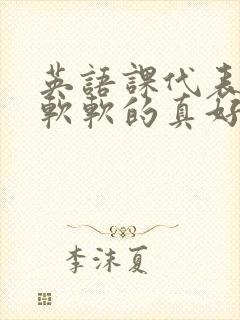 英語課代表
軟軟的真好
李沫夏